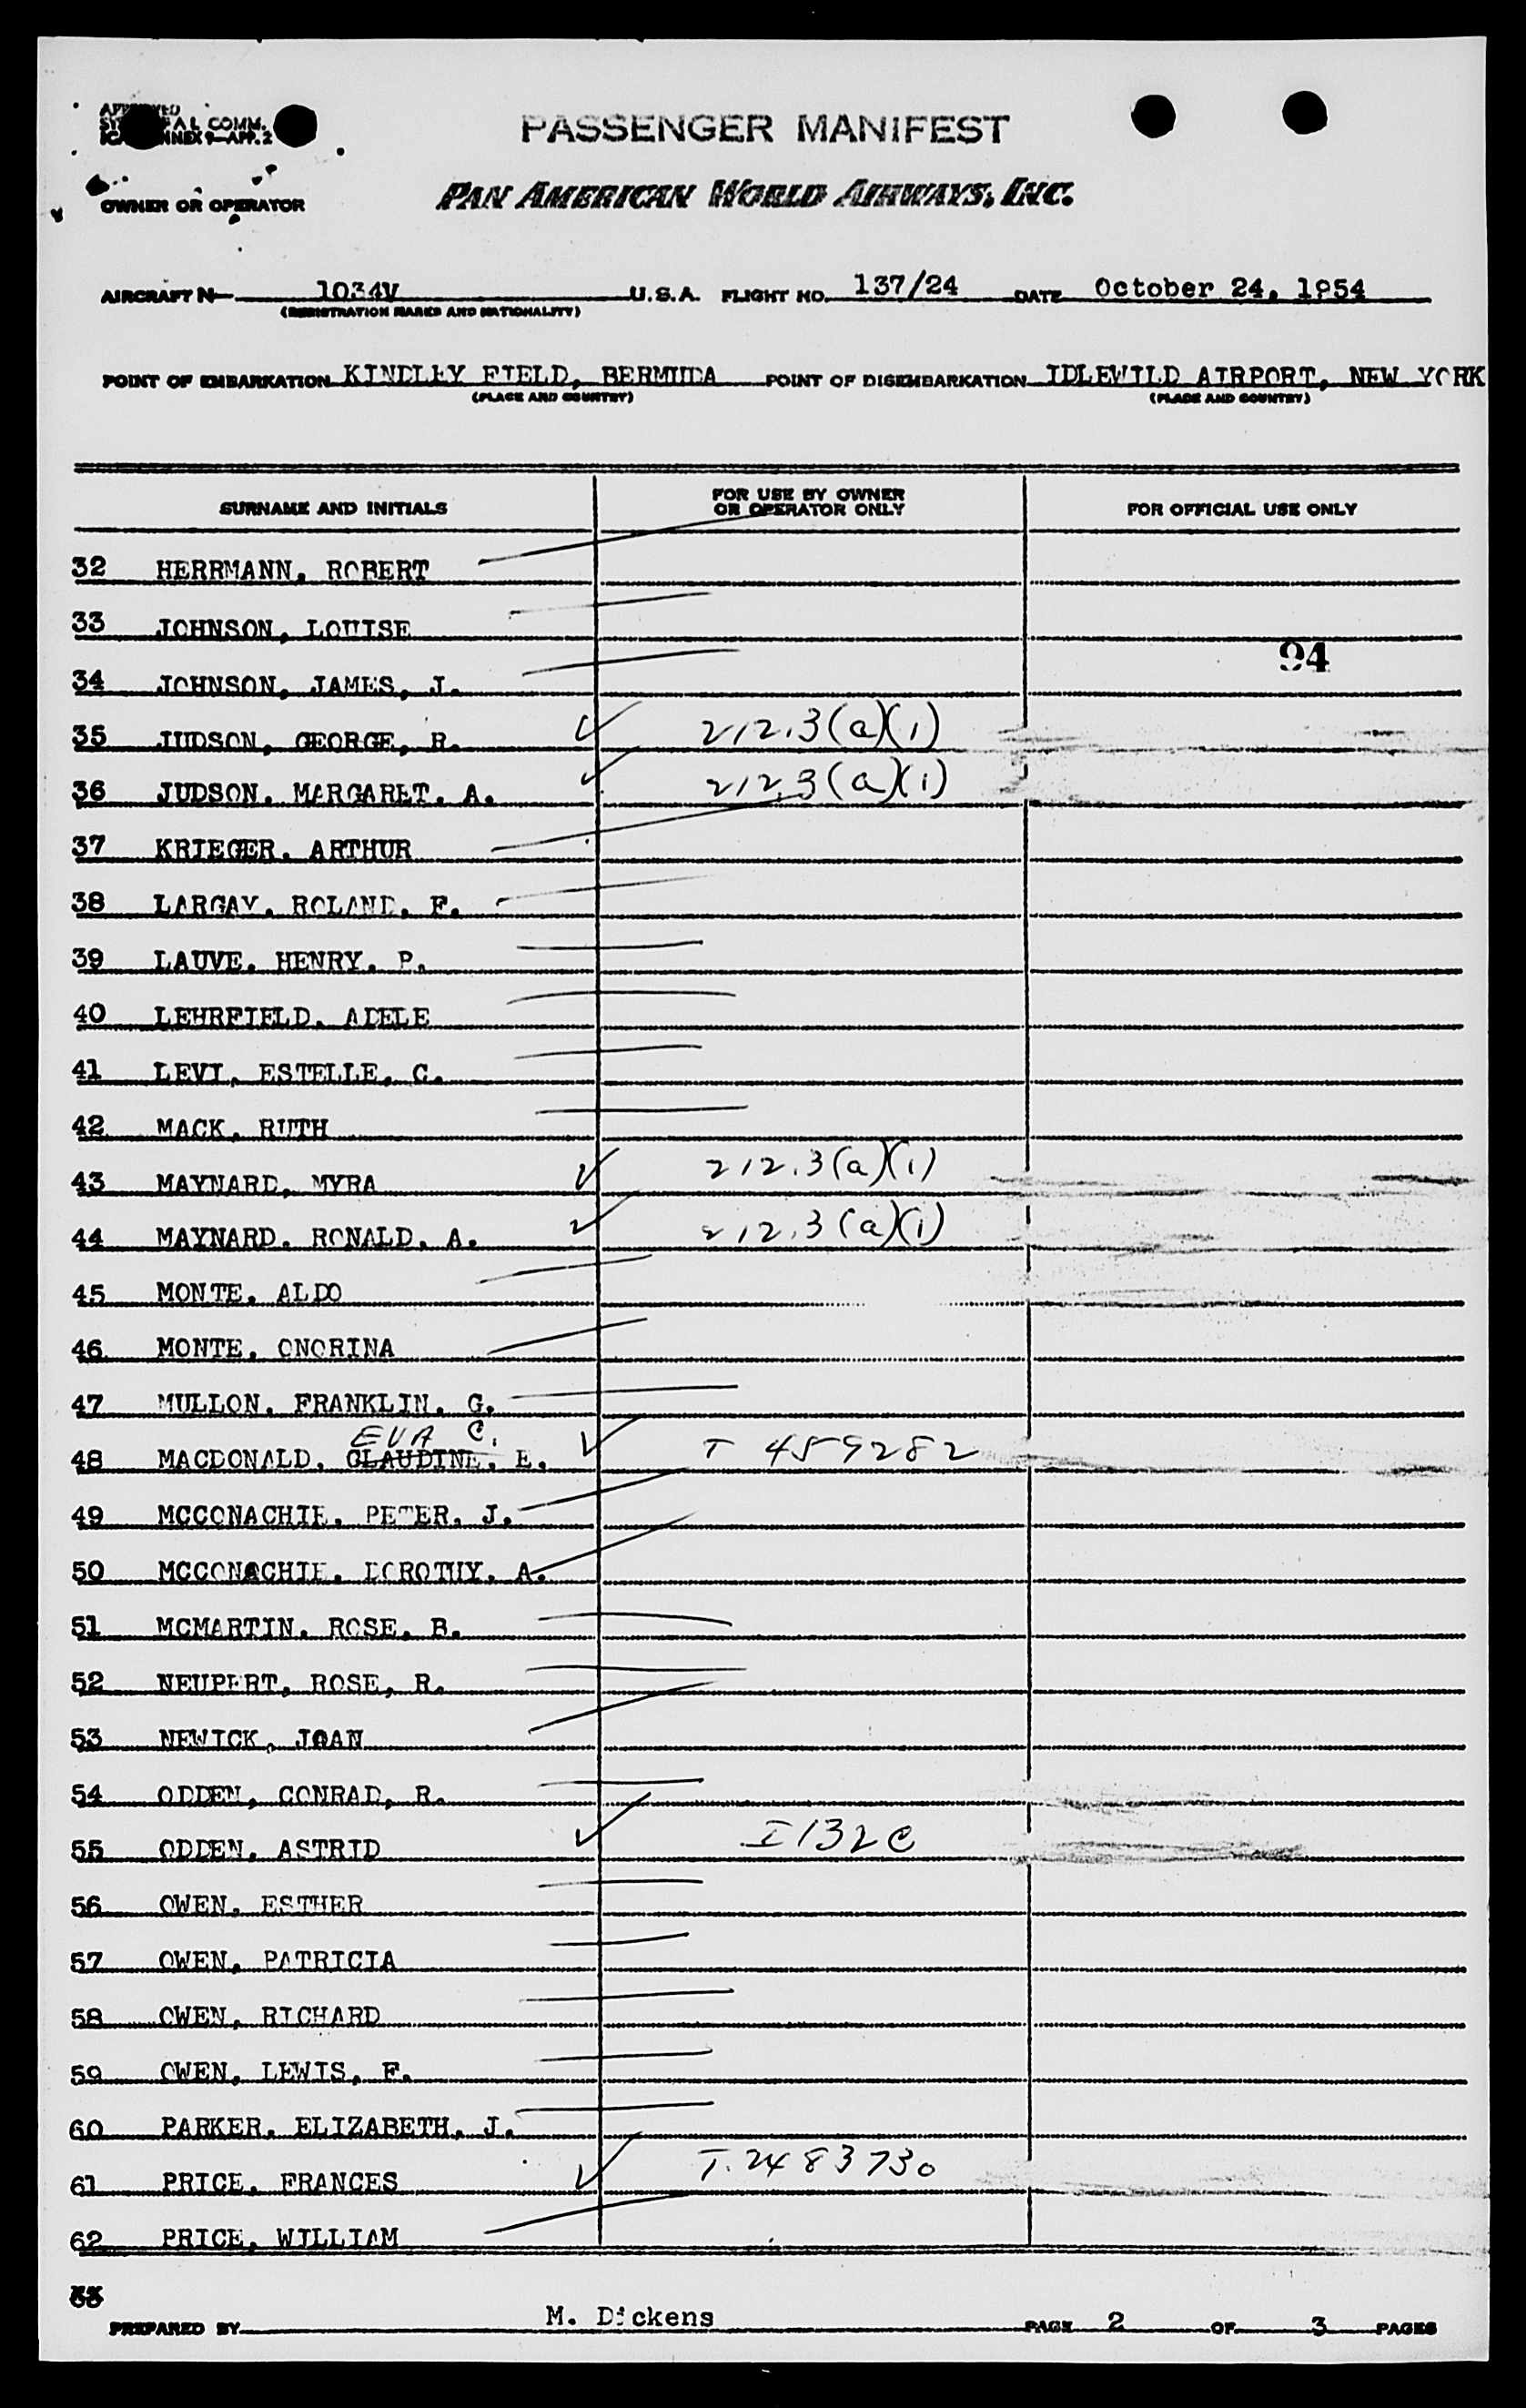 APPROVED
COMM.
ANNEX 9—APP. 2
PASSENGER MANIFEST
OWNER OR OPERATOR PAN AMERICAN WORLD AIRWAYS, INC.
AIRCRAFT N— 1034V U.S.A. FLIGHT NO. 137/24 DATE October 24, 1954
(REGISTRATION MARKS AND NATIONALITY)
POINT OF EMBARKATION KINDLEY FIELD, BERMUDA POINT OF DISEMBARKATION IDLEWILD AIRPORT, NEW YORK
(PLACE AND COUNTRY) (PLACE AND COUNTRY)
SURNAME AND INITIALS FOR USE BY OWNER OR OPERATOR ONLY FOR OFFICIAL USE ONLY
32 HERRMANN, ROBERT
33 JOHNSON, LOUISE
94
34 JOHNSON, JAMES, J.
35 JUDSON, GEORGE, R. ✓ 212.3(a)(1)
36 JUDSON, MARGARET, A. ✓ 212.3(a)(1)
37 KRIEGER, ARTHUR
38 LARGAY, ROLAND, F.
39 LAUVE, HENRY, P.
40 LEHRFIELD, ADELE
41 LEVI, ESTELLE, C.
42 MACK, RUTH
43 MAYNARD, MYRA ✓ 212.3(a)(1)
44 MAYNARD, RONALD, A. ✓ 212.3(a)(1)
45 MONTE, ALDO
46 MONTE, ONORINA
47 MULLON, FRANKLIN, G.
EVA C.
48 MACDONALD, CLAUDINE, E. ✓ T 459282
49 MCCONACHIE, PETER, J.
50 MCCONACHIE, DOROTHY, A.
51 MCMARTIN, ROSE, B.
52 NEUPERT, ROSE, R.
53 NEWICK, JOAN
54 ODDEN, CONRAD, R.
55 ODDEN, ASTRID ✓ I 132 C
56 OWEN, ESTHER
57 OWEN, PATRICIA
58 OWEN, RICHARD
59 OWEN, LEWIS, F.
60 PARKER, ELIZABETH, J.
61 PRICE, FRANCES ✓ T. 2483730
62 PRICE, WILLIAM
PREPARED BY M. Dickens PAGE 2 OF 3 PAGES